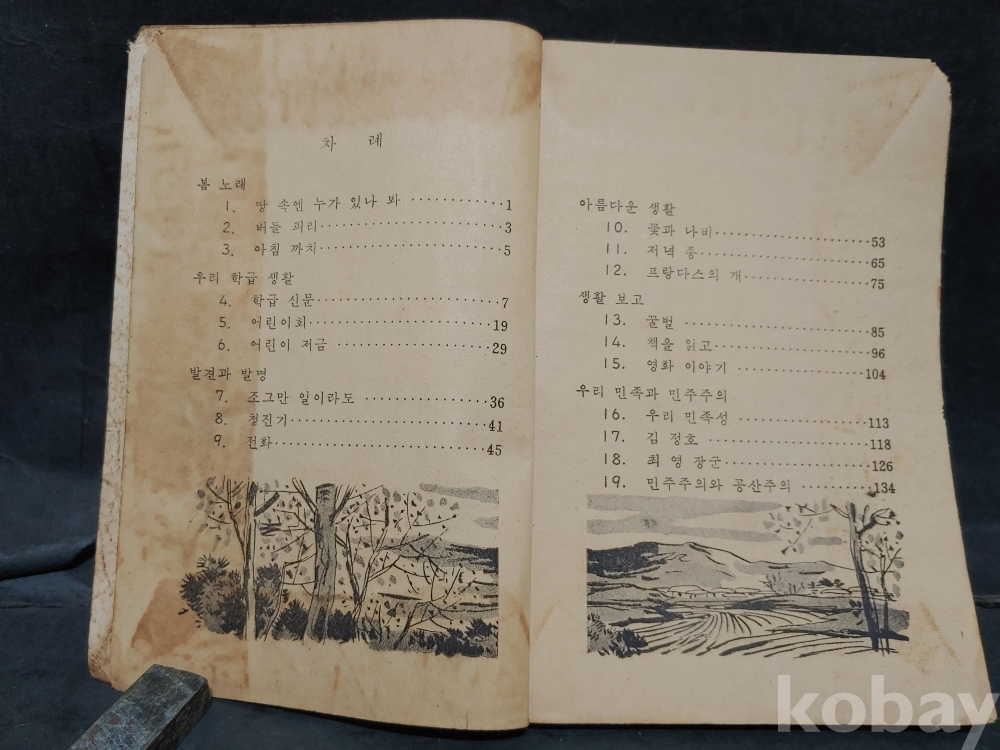 차 례
봄 노래
1. 땅 속엔 누가 있나 봐 ············1
2. 버들 피리 ····················3
3. 아침 까치 ····················5
우리 학급 생활
4. 학급 신문 ····················7
5. 어린이회 ····················19
6. 어린이 저금 ··················29
발견과 발명
7. 조그만 일이라도 ···············36
8. 청진기 ······················41
9. 전화 ························45
아름다운 생활
10. 꽃과 나비 ···················53
11. 저녁 종 ·····················65
12. 프랑다스의 개 ················75
생활 보고
13. 꿀벌 ·······················85
14. 책을 읽고 ···················96
15. 영화 이야기 ·················104
우리 민족과 민주주의
16. 우리 민족성 ·················113
17. 김 정호 ····················118
18. 최 영 장군 ··················126
19. 민주주의와 공산주의 ··········134
kobay